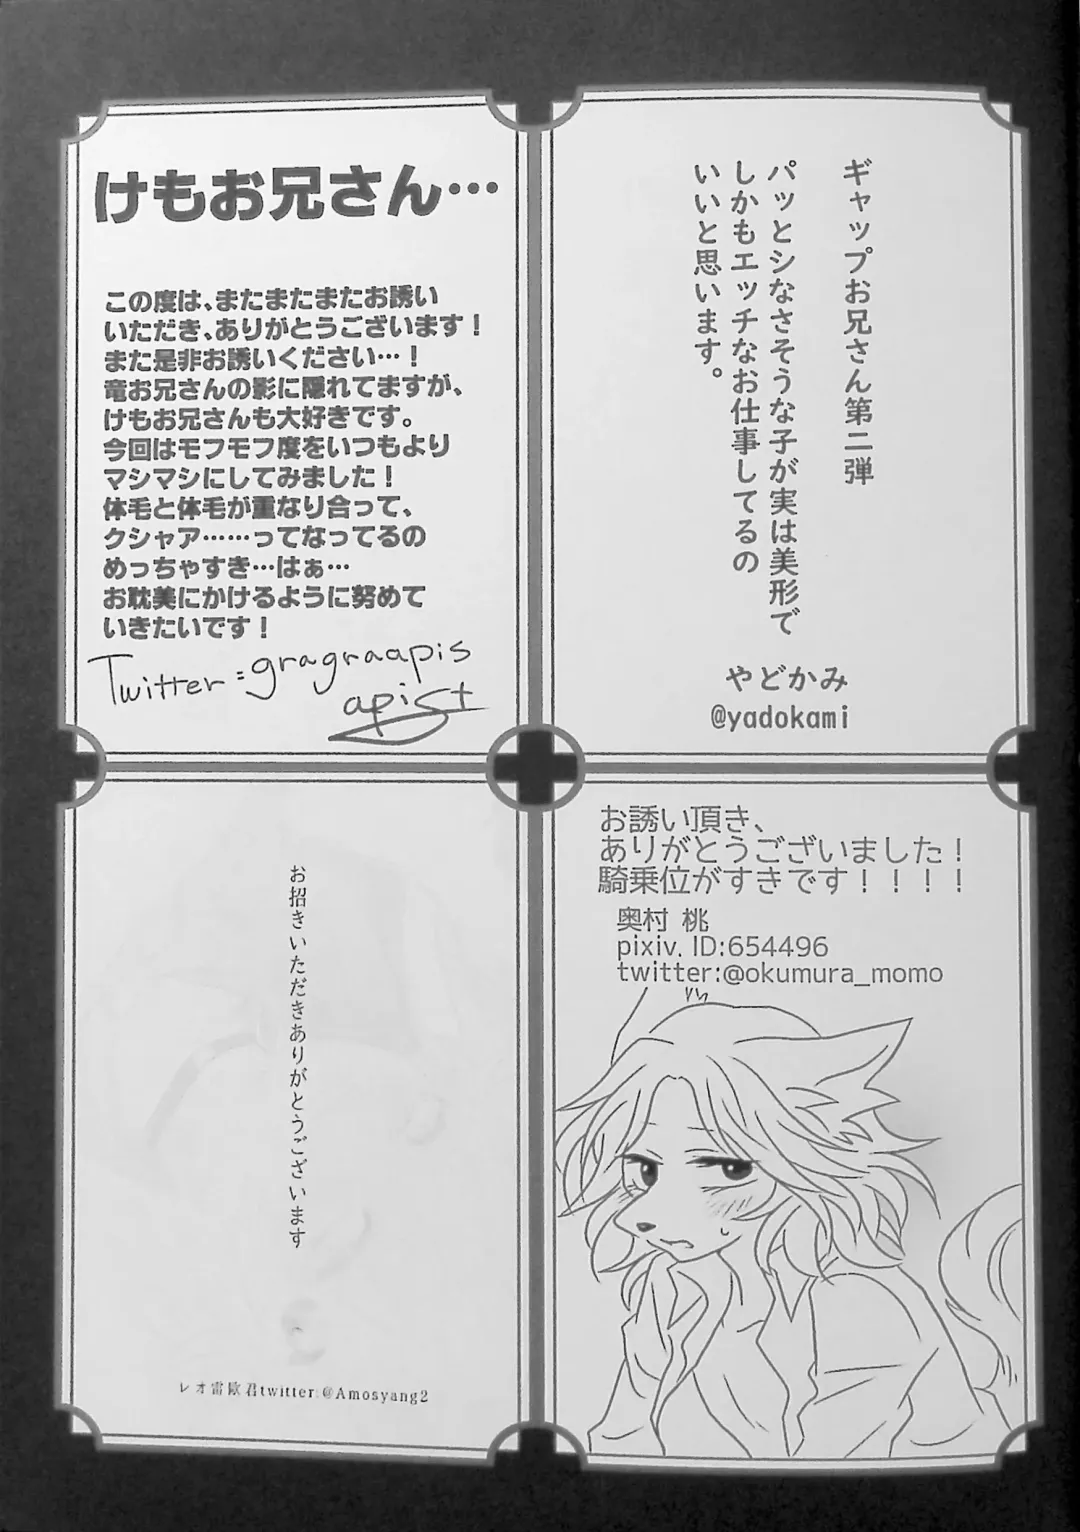 けもお兄さん…
この度は、またまたまたお誘い
いただき、ありがとうございます！
また是非お誘いください…！
竜お兄さんの影に隠れてますが、
けもお兄さんも大好きです。
今回はモフモフ度をいつもより
マシマシにしてみました！
体毛と体毛が重なり合って、
クシャア……ってなってるの
めっちゃすき…はぁ…
お耽美にかけるように努めて
いきたいです！
Twitter=gragraapis
apist
ギャップお兄さん第二弾
パッとシなさそうな子が実は美形で
しかもエッチなお仕事してるの
いいと思います。
やどかみ
@yadokami
お招きいただきありがとうございます
レオ雷歐君twitter:@Amosyang2
お誘い頂き、
ありがとうございました！
騎乗位がすきです！！！！
奥村 桃
pixiv. ID:654496
twitter:@okumura_momo